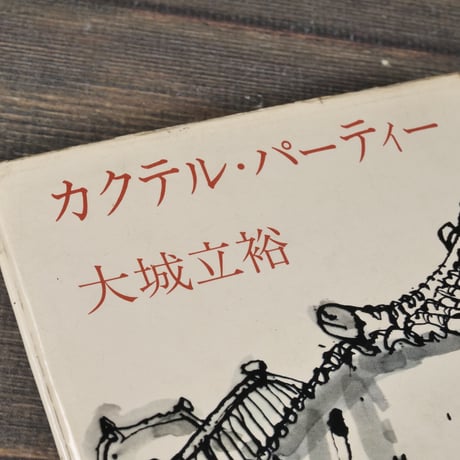 カクテル・パーティー
大城立裕